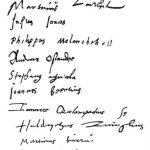 Martinus Luther
Justus Jonas
Philippus Melanchthon
Andreas Osiander
Stephanus Agricola
Joannes Brentius
Joannes Oecolampadius
Huldrychus Zwinglius
Martinus Bucerus